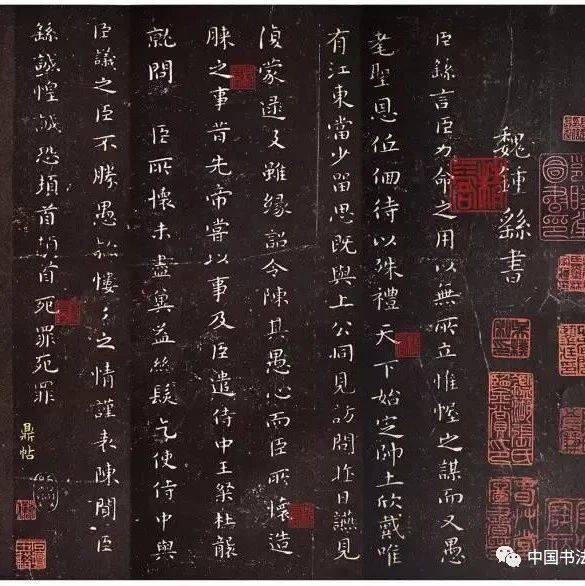 魏鍾繇書
臣繇言臣力命之用以無所立惟幄之謀而又愚
耄聖恩低佪待以殊禮天下始定師土欣戴唯
有江東當少留思既與上公同見訪問昨日讌見
復蒙逮及雖緣詔令陳其愚心而臣所懷造
膝之事昔先帝嘗以事及臣遣侍中王粲杜襲
就問 臣所懷未盡冀益絲髮乞使侍中與
臣議之臣不勝愚款慺々之情謹表陳聞臣
繇誠惶誠恐頓首頓首死罪死罪
鼎帖
中国书法